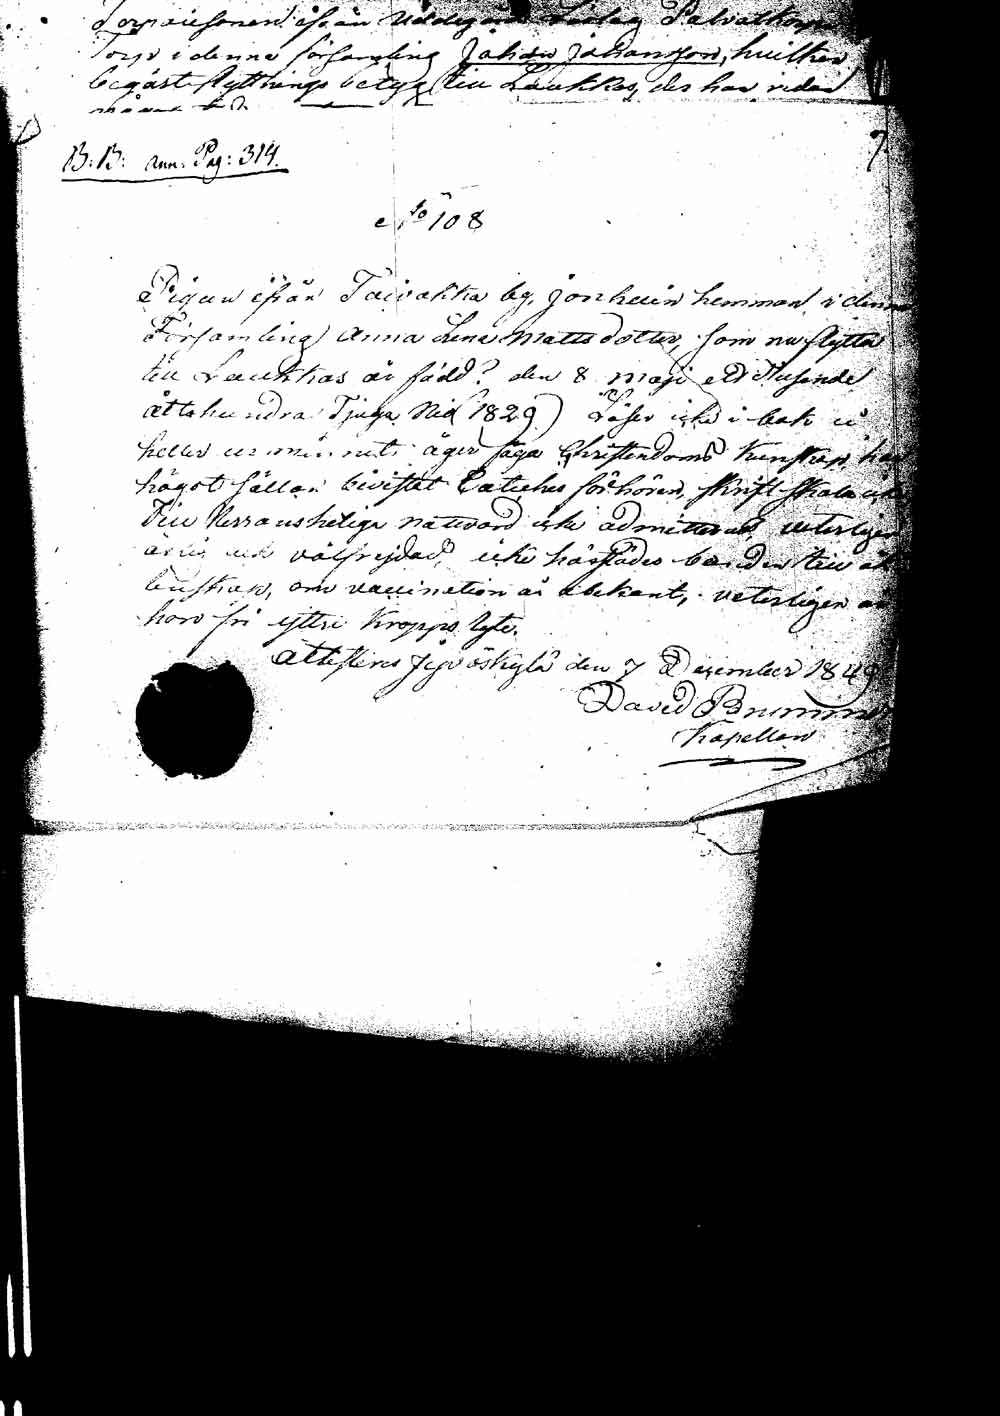 ifrån
Torp i denna församling Johan Johansson, hvilken
begärt flyttnings betyg till Laukkas, des har redan
B:B: ann. Pag: 314.
7
No 108
Pigan ifrån Taivakka by, Jonhein hemman i denna
Församling Anna Lena Mattsdotter, som nu flytta
till Laukkas är född? den 8 Maji ett Tusende
åttahundra Tjugu Nio (1829) Läser icke i bok ej
heller äger svaga Christendoms Kunskap, har
något sällan bivistat Catches förhören, skrift skola
Till Herrans heliga nattvard icke admitterad, veterligen
ärlig och välfrejdad, icke härstädes bunden till äk
tenskap, om vaccination är obekant, veterligen är
hon fri yttre Kropps lyte.
Attesteras Jyväskylä den 7 December 1849
David Brummer
Kapellan